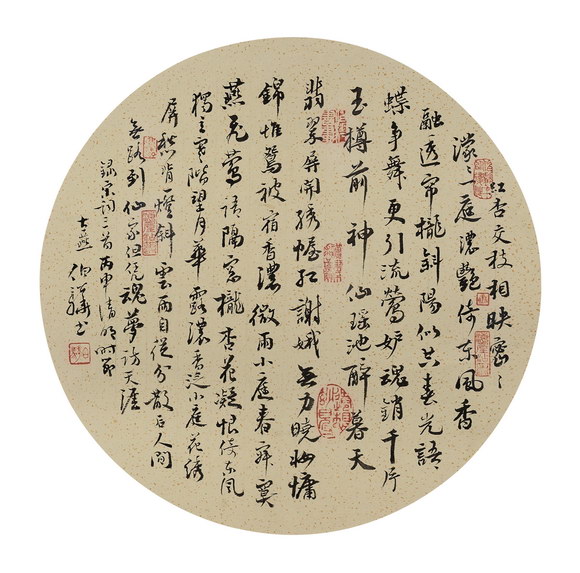 红杏交枝相映密〻
濛〻一庭濃艷倚東風香
融透帘櫳斜陽似共春光語
蝶争舞更引流鶯妒魂銷千片
玉樽前神仙瑶池醉暮天
翡翠屏開綉幄红謝娥無力曉妝慵
錦帷鴛被宿香濃微雨小庭春寂寞
燕飛鶯語隔簾櫳杏花凝恨倚东風
獨立寒階望月華露濃香泛小庭花绣
屏愁背一燈斜雲雨自從分散后人間
無路到仙家但凭魂夢訪天涯
録宋詞三首丙申清明時節
燕伯书